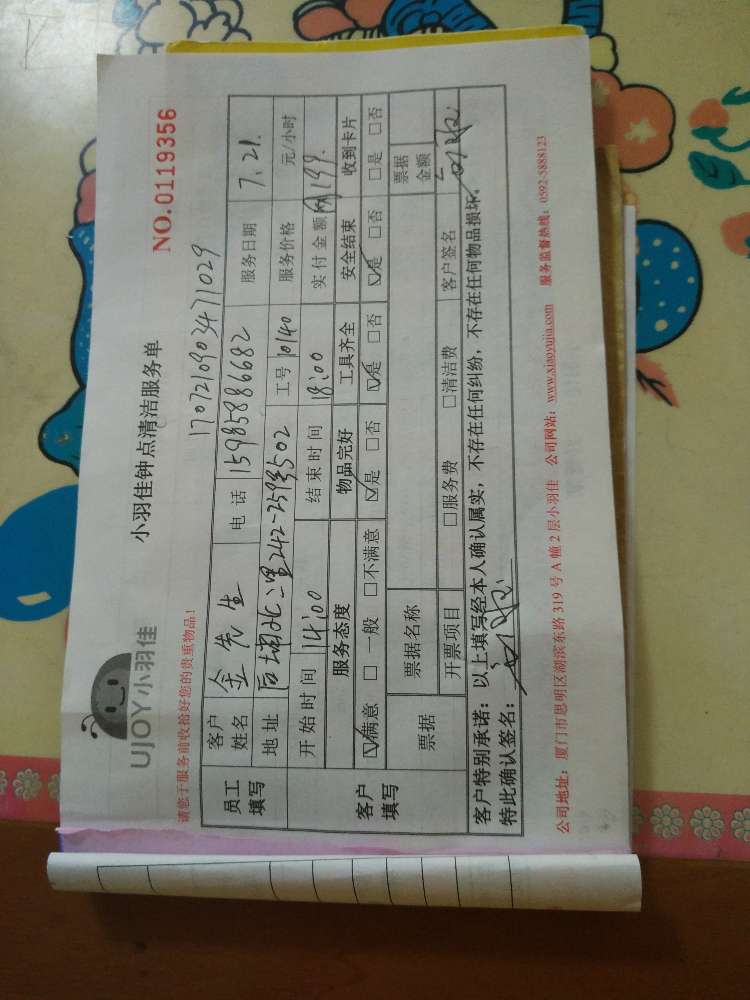 UJOY小羽佳
小羽佳钟点清洁服务单
NO.0119356
1707210903471029
请您于服务前收拾好您的贵重物品!
员工填写
客户姓名 金先生 电话 15985886682 服务日期 7.21.
地址 后埔北二里242-259号502 工号 10140 服务价格 元/小时
客户填写
开始时间 14:00 结束时间 18:00 实付金额 199.
服务态度 物品完好 工具齐全 安全结束 收到卡片
☑满意 □一般 □不满意 ☑是 □否 ☑是 □否 ☑是 □否 □是 □否
票据 票据名称 票据金额
开票项目 □服务费 □清洁费 客户签名
客户特别承诺:以上填写经本人确认属实,不存在任何纠纷,不存在任何物品损坏。
特此确认签名:
公司地址:厦门市思明区湖滨东路319号A幢2层小羽佳 公司网站:www.xiaoyujia.com 服务监督热线:0592-5888123